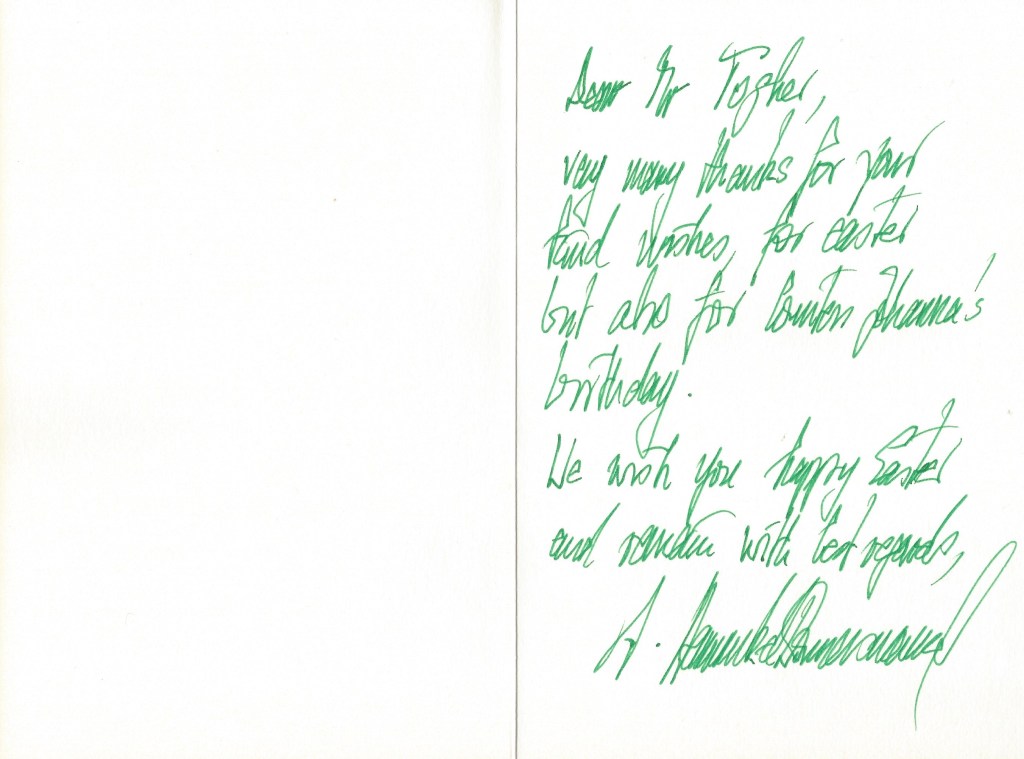 Dear Mr Togher,
very many thanks for your
kind wishes, for easter
but also for Johanna's
birthday.
We wish you happy Easter
and remain with best regards,